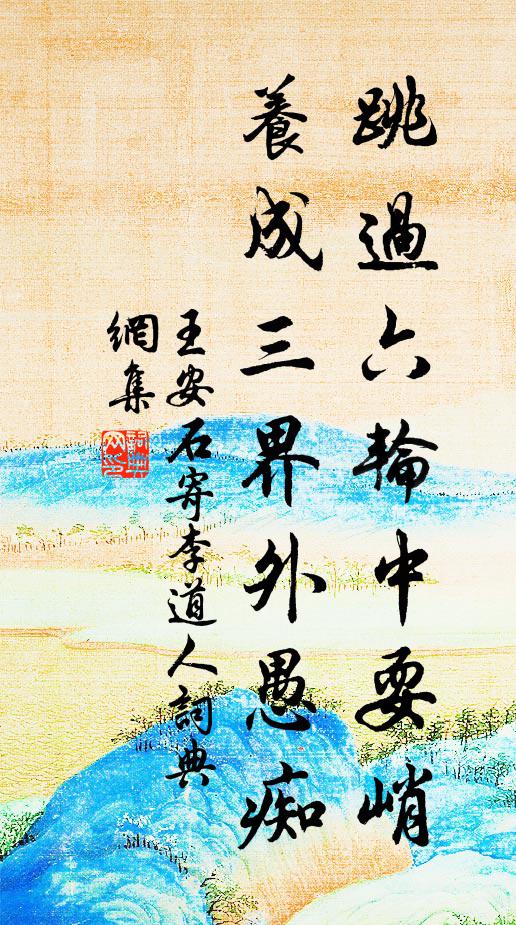 跳過六輪中耍峭
養成三界外愚痴
王安石寄李道人詞典
網集